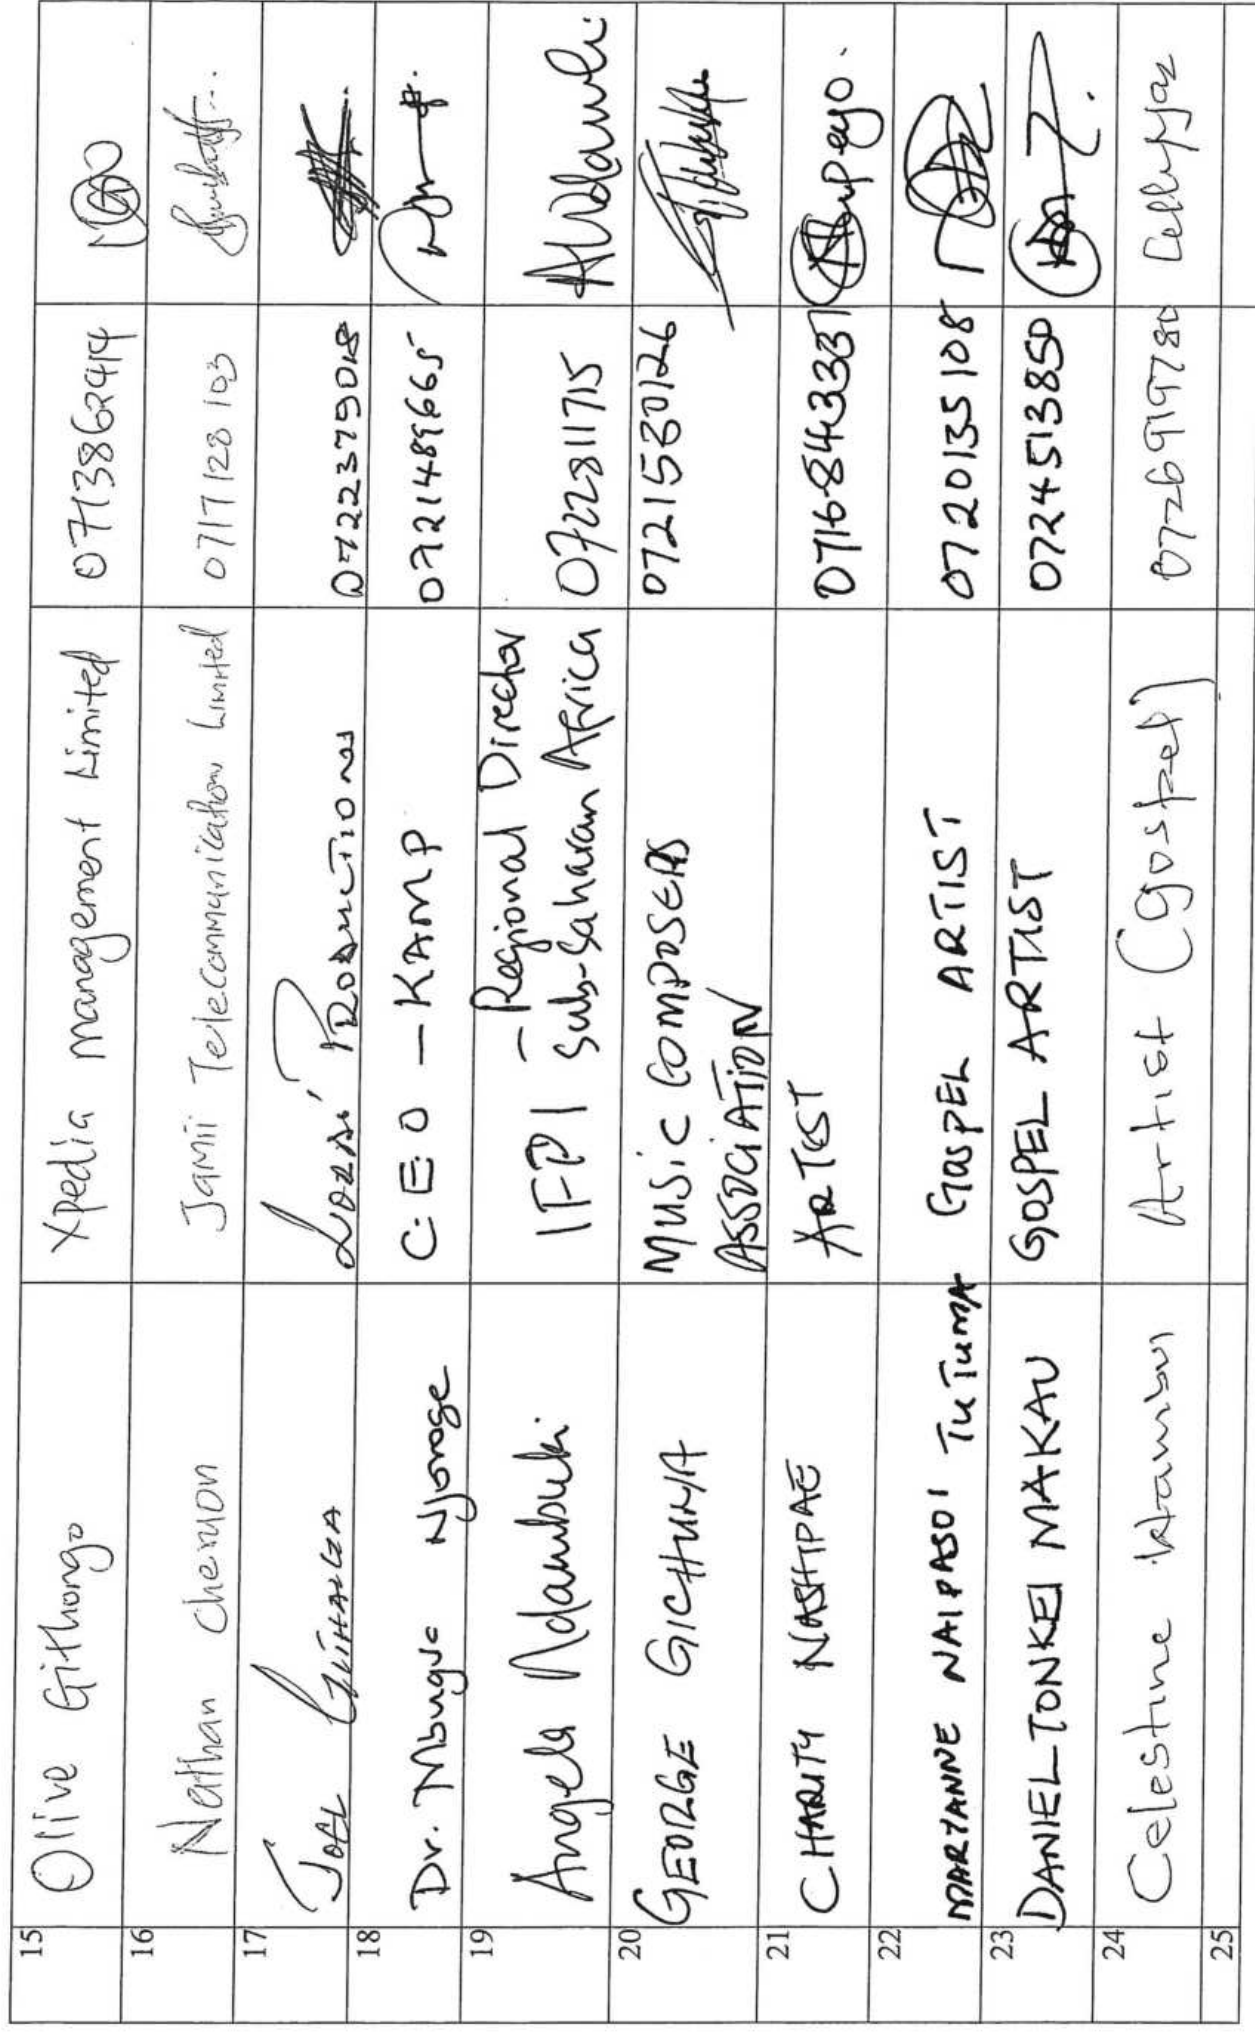 15 Olive Githongo Xpedia management Limited 0713862414
16 Nathan Cheruon Jamii Telecommunication Limited 0717128103
17 Joel PRODUCTIONS 0722375018
18 Dr. Mbugua Njoroge C.E.O - KAMP 0721489665
19 Angela Ndambuki IFPI - Regional Director
Sub-Saharan Africa 0722811715 ANdambuki
20 GEORGE GICHUHA MUSIC COMPOSERS
ASSOCIATION 0721530126
21 CHARITY NASHIPAE ARTIST 0716843337
22 MARYANNE NAIPASOI TUTUMA GOSPEL ARTIST 0720135108
23 DANIEL TONKEI MAKAU GOSPEL ARTIST 0724513850
24 Celestine Artist (gospel) 0726919780
25